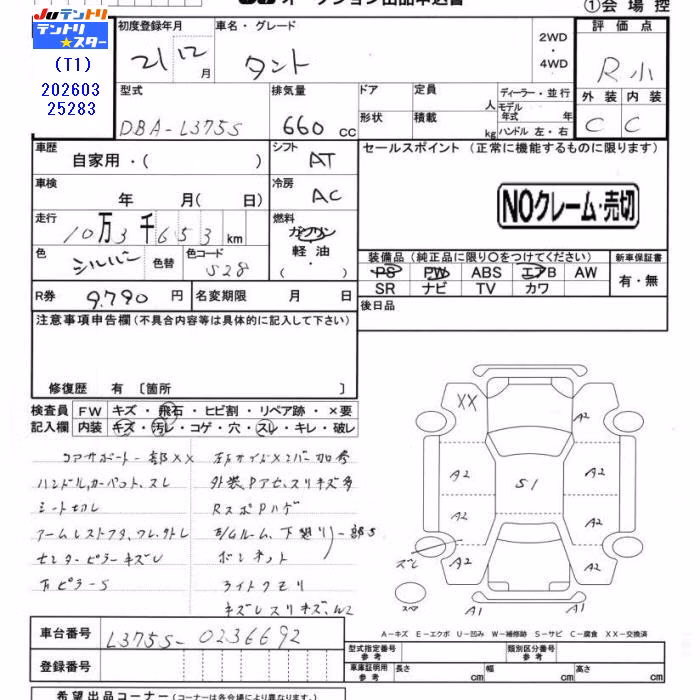 JUテントリ
テントリ★スター
(T1)
202603
25283
①会場控
初度登録年月
21 12 月
車名・グレード
タント
2WD
・
4WD
評価点
R小
外装 内装
C C
型式
DBA-L375S
排気量
660 cc
ドア
定員
人
ディーラー・並行
モデル年式 年
形状
積載
kg
ハンドル 左・右
車歴
自家用・( )
シフト
AT
セールスポイント (正常に機能するものに限ります)
車検
年 月( 日)
冷房
AC
NOクレーム・売切
走行
10万3千653 km
燃料
ガソリン
軽油
・
( )
色
シルバー
色替
色コード
S28
装備品 (純正品に限り○をつけてください)
新車保証書
PS PW ABS エアB AW
SR ナビ TV カワ
有・無
R券 9,790 円
名変期限 月 日
後日品
注意事項申告欄 (不具合内容等は具体的に記入して下さい)
修復歴 有 〔箇所 〕
検査員 FW キズ・飛石・ヒビ割・リペア跡・×要
記入欄 内装 キズ・汚レ・コゲ・穴・スレ・キレ・破レ
コアサポート一部XX
ハンドル、カーペット、スレ
外装、Pアセ、スリキズ多
シート切レ
RスポPハゲ
センターピラーキズレ
ボンネット
ピラーS
ライトクモリ
キズレスリキズ、W2
XX
A2
A2
A2
S1
A2
A2
A2
A2
ズレ
A2
スペア
A1
A1
A-キズ E-エクボ U-凹み W-補修跡 S-サビ C-腐食 XX-交換済
車台番号 L375S-0236692
登録番号
型式指定番号 参考
類別区分番号 参考
車庫証明用 参考
長さ cm
幅 cm
高さ cm
希望出品コーナー (コーナーは各会場により異なります。)